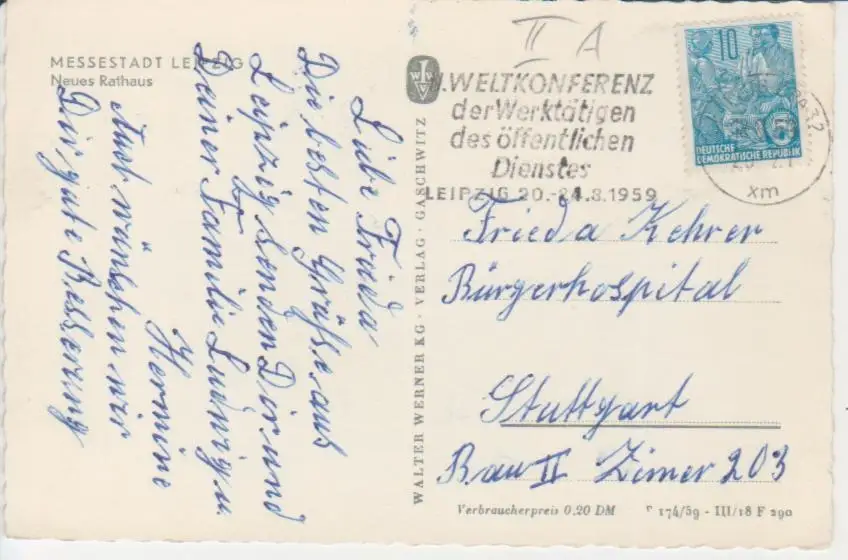 MESSESTADT LEIPZIG
Neues Rathaus
Liebe Frieda
Die besten Grüße aus
Leipzig senden Dir und
Deiner Familie Ludwig u.
Hermine
Auch wünschen wir
Dir gute Besserung
WALTER WERNER KG · VERLAG · GASCHWITZ
II A
WELTKONFERENZ
der Werktätigen
des öffentlichen
Dienstes
LEIPZIG 20.-24.8.1959
10
5
DEUTSCHE
DEMOKRATISCHE REPUBLIK
xm
Frieda Kehrer
Bürgerhospital
Stuttgart
Bau II Zimer 203
Verbraucherpreis 0,20 DM
174/59 - III/18 F 290